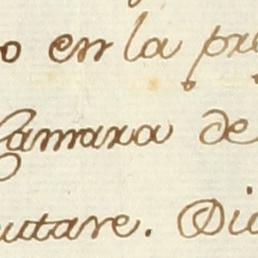 o en la pre
Camara de
utare. Dio